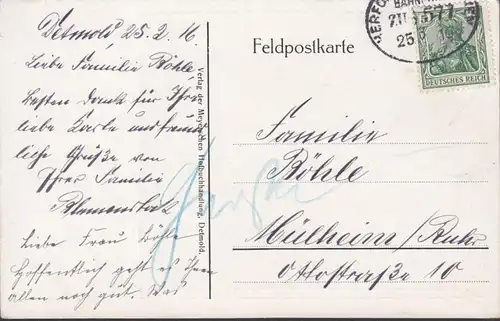 Detmold 25.2.16
Liebe Familie Böhle,
Besten Dank für Ihre
liebe Karte und freund
liche Grüße von
Ihrer Familie
Liebe Frau Böhle
Hoffentlich geht es Ihnen
allen noch gut. Was
Verlag der Meyerschen Hofbuchhandlung, Detmold.
Feldpostkarte
BAHNPOST
ZUG 577
25
DEUTSCHES REICH
Familie
Böhle
Mülheim/Ruhr
Ottostraße 10